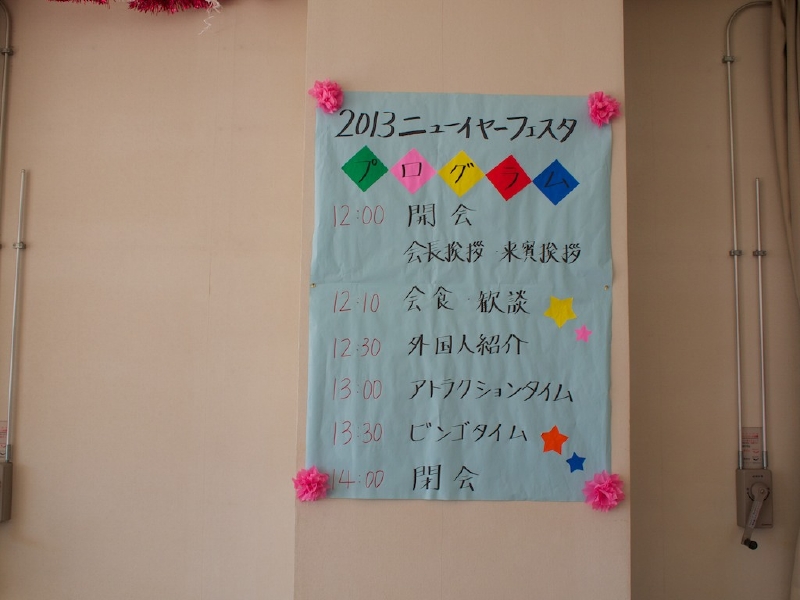 2013ニューイヤーフェスタ
プログラム
12:00 開会
会長挨拶 来賓挨拶
12:10 会食・歓談
12:30 外国人紹介
13:00 アトラクションタイム
13:30 ビンゴタイム
14:00 閉会